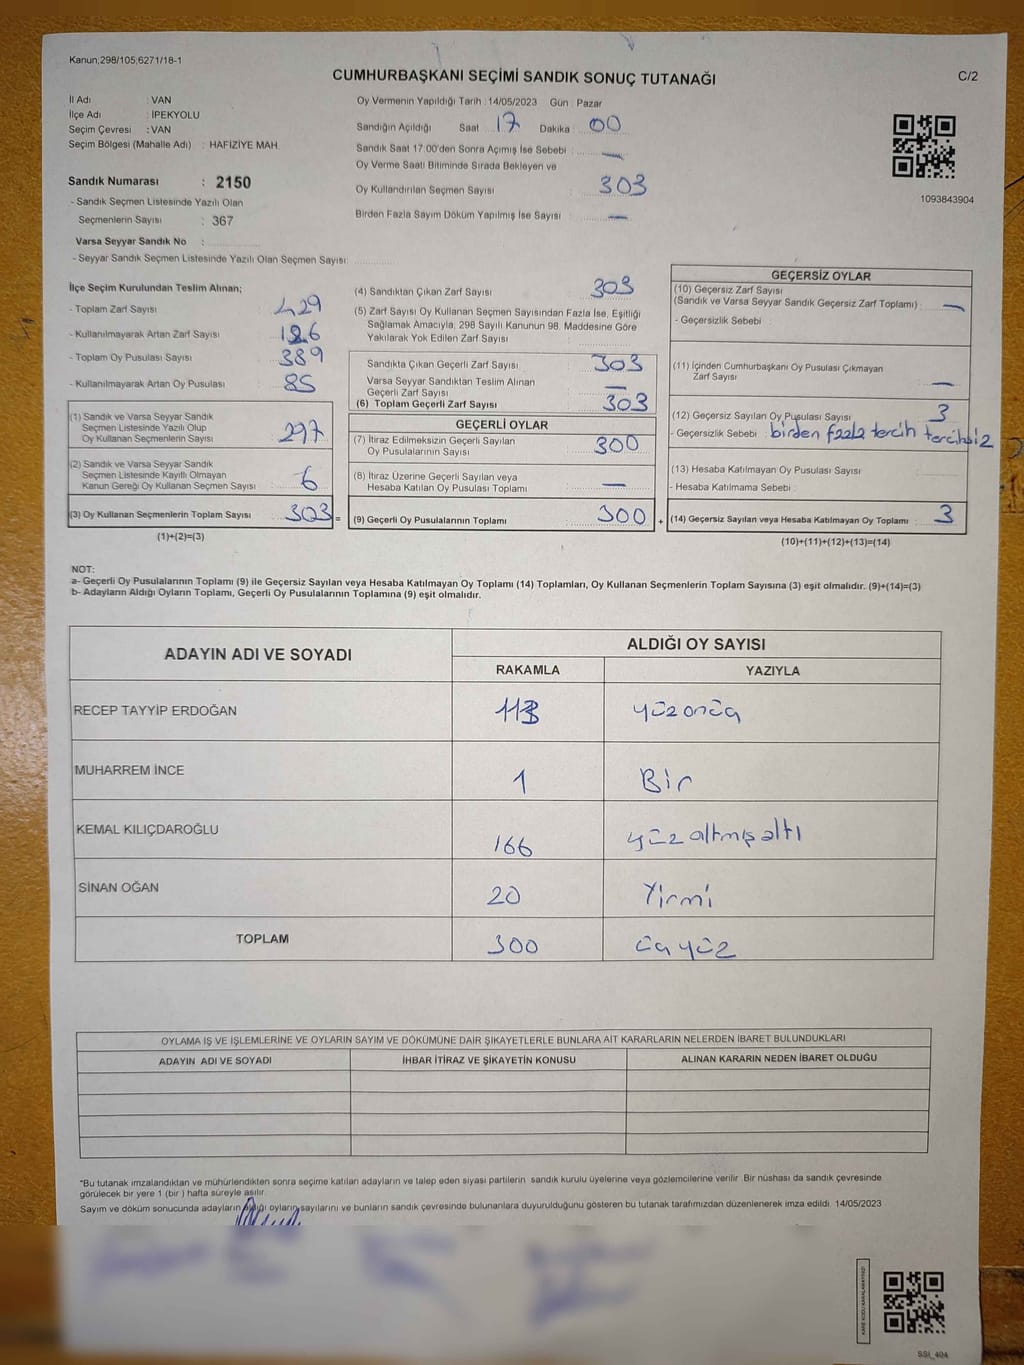 Kanun;298/105;6271/18-1
CUMHURBAŞKANI SEÇİMİ SANDIK SONUÇ TUTANAĞI
C/2
İl Adı : VAN
İlçe Adı : İPEKYOLU
Seçim Çevresi : VAN
Seçim Bölgesi (Mahalle Adı) : HAFİZİYE MAH.
Sandık Numarası : 2150
- Sandık Seçmen Listesinde Yazılı Olan
Seçmenlerin Sayısı : 367
Varsa Seyyar Sandık No :
- Seyyar Sandık Seçmen Listesinde Yazılı Olan Seçmen Sayısı:
Oy Vermenin Yapıldığı Tarih :14/05/2023 Gün : Pazar
Sandığın Açıldığı Saat : 17 Dakika : 00
Sandık Saat 17:00'den Sonra Açımış İse Sebebi : —
Oy Verme Saati Bitiminde Sırada Bekleyen ve
Oy Kullandırılan Seçmen Sayısı 303
Birden Fazla Sayım Döküm Yapılmış İse Sayısı : —
1093843904
İlçe Seçim Kurulundan Teslim Alınan;
- Toplam Zarf Sayısı : 429
- Kullanılmayarak Artan Zarf Sayısı : 126
- Toplam Oy Pusulası Sayısı : 389
- Kullanılmayarak Artan Oy Pusulası : 85
(1) Sandık ve Varsa Seyyar Sandık
Seçmen Listesinde Yazılı Olup
Oy Kullanan Seçmenlerin Sayısı : 297
(2) Sandık ve Varsa Seyyar Sandık
Seçmen Listesinde Kayıtlı Olmayan
Kanun Gereği Oy Kullanan Seçmen Sayısı : 6
(3) Oy Kullanan Seçmenlerin Toplam Sayısı : 303 =
(1)+(2)=(3)
(4) Sandıktan Çıkan Zarf Sayısı : 303
(5) Zarf Sayısı Oy Kullanan Seçmen Sayısından Fazla İse, Eşitliği
Sağlamak Amacıyla; 298 Sayılı Kanunun 98. Maddesine Göre
Yakılarak Yok Edilen Zarf Sayısı :
Sandıkta Çıkan Geçerli Zarf Sayısı : 303
Varsa Seyyar Sandıktan Teslim Alınan
Geçerli Zarf Sayısı : —
(6) Toplam Geçerli Zarf Sayısı : 303
GEÇERLİ OYLAR
(7) İtiraz Edilmeksizin Geçerli Sayılan
Oy Pusulalarının Sayısı : 300
(8) İtiraz Üzerine Geçerli Sayılan veya
Hesaba Katılan Oy Pusulası Toplamı : —
(9) Geçerli Oy Pusulalarının Toplamı : 300 +
GEÇERSİZ OYLAR
(10) Geçersiz Zarf Sayısı
(Sandık ve Varsa Seyyar Sandık Geçersiz Zarf Toplamı) : —
- Geçersizlik Sebebi :
(11) İçinden Cumhurbaşkanı Oy Pusulası Çıkmayan
Zarf Sayısı : —
(12) Geçersiz Sayılan Oy Pusulası Sayısı : 3
- Geçersizlik Sebebi : birden fazla tercih tercihsiz
(13) Hesaba Katılmayan Oy Pusulası Sayısı :
- Hesaba Katılmama Sebebi :
(14) Geçersiz Sayılan veya Hesaba Katılmayan Oy Toplamı : 3
(10)+(11)+(12)+(13)=(14)
NOT:
a- Geçerli Oy Pusulalarının Toplamı (9) ile Geçersiz Sayılan veya Hesaba Katılmayan Oy Toplamı (14) Toplamları, Oy Kullanan Seçmenlerin Toplam Sayısına (3) eşit olmalıdır. (9)+(14)=(3)
b- Adayların Aldığı Oyların Toplamı, Geçerli Oy Pusulalarının Toplamına (9) eşit olmalıdır.
ADAYIN ADI VE SOYADI
ALDIĞI OY SAYISI
RAKAMLA YAZIYLA
RECEP TAYYİP ERDOĞAN 113 yüzonüç
MUHARREM İNCE 1 Bir
KEMAL KILIÇDAROĞLU 166 yüzaltmışaltı
SİNAN OĞAN 20 Yirmi
TOPLAM 300 üçyüz
OYLAMA İŞ VE İŞLEMLERİNE VE OYLARIN SAYIM VE DÖKÜMÜNE DAİR ŞİKAYETLERLE BUNLARA AİT KARARLARIN NELERDEN İBARET BULUNDUKLARI
ADAYIN ADI VE SOYADI İHBAR İTİRAZ VE ŞİKAYETİN KONUSU ALINAN KARARIN NEDEN İBARET OLDUĞU
*Bu tutanak imzalandıktan ve mühürlendikten sonra seçime katılan adayların ve talep eden siyasi partilerin sandık kurulu üyelerine veya gözlemcilerine verilir. Bir nüshası da sandık çevresinde
görülecek bir yere 1 (bir ) hafta süreyle asılır.
Sayım ve döküm sonucunda adayların aldığı oyların sayılarını ve bunların sandık çevresinde bulunanlara duyurulduğunu gösteren bu tutanak tarafımızdan düzenlenerek imza edildi. 14/05/2023
SSI_404